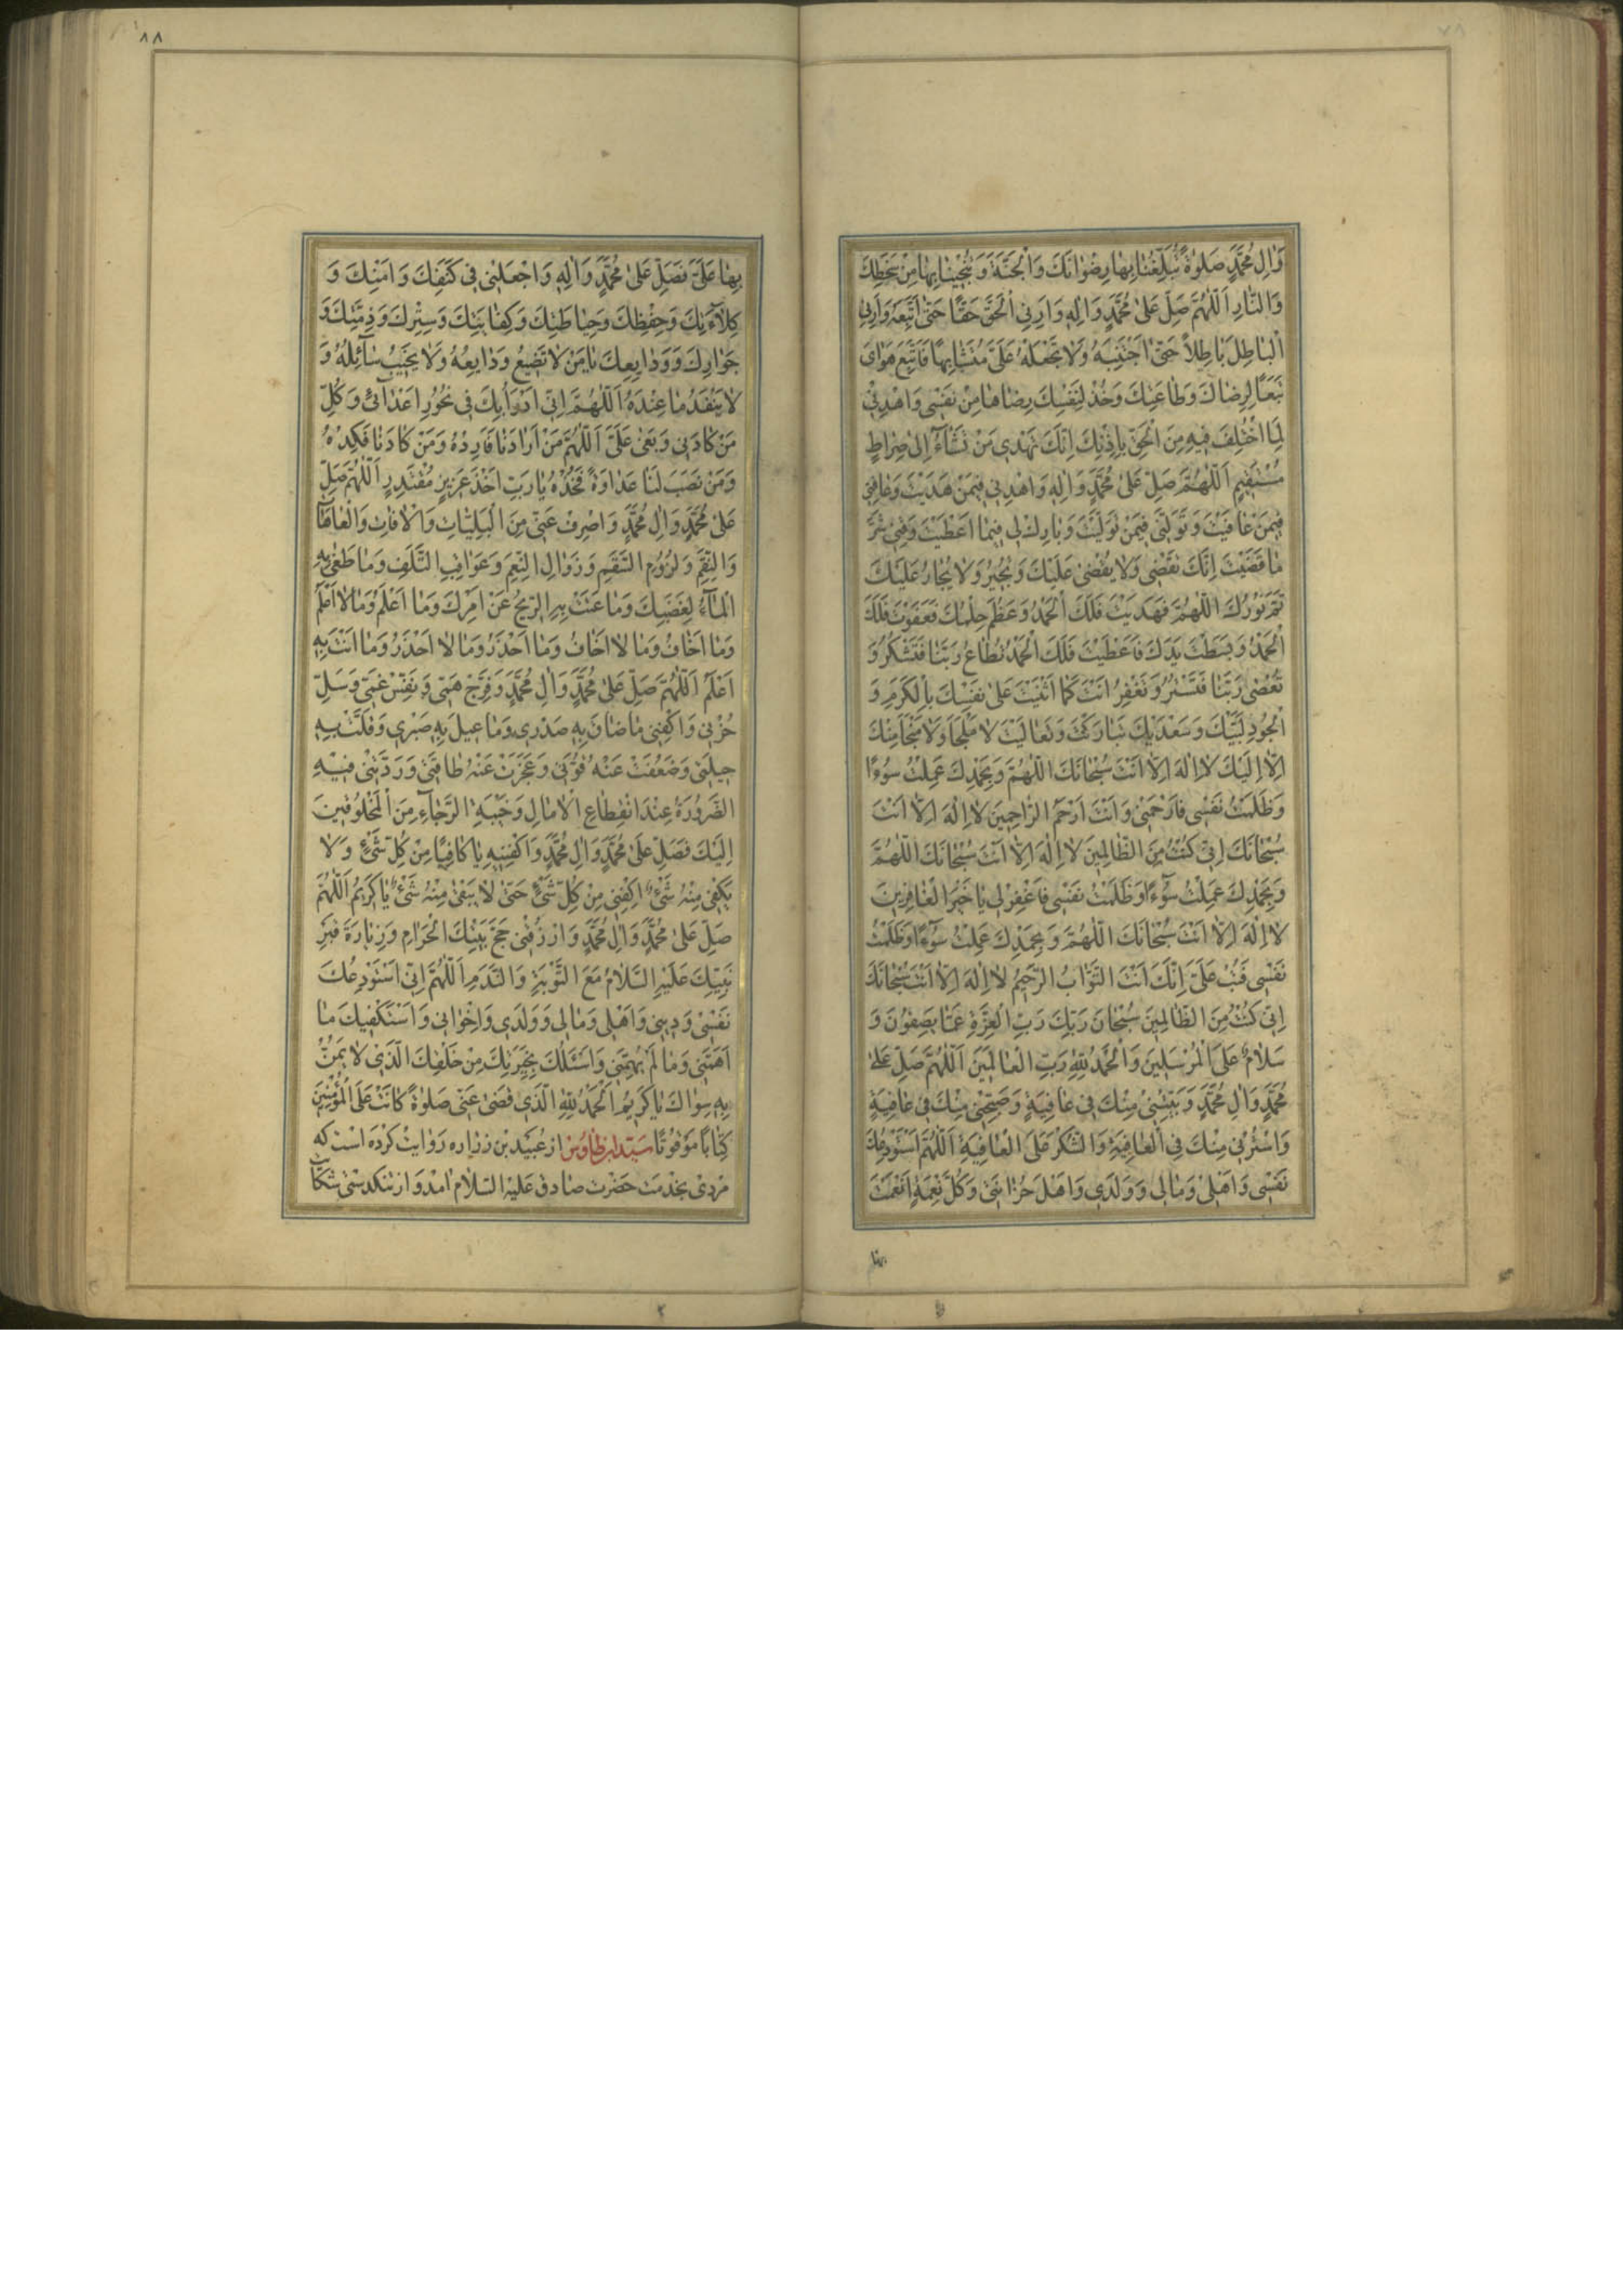 وَالِ مُحَمَّدٍ صَلٰوةً تُبَلِّغُنَا بِهَا رِضْوَانَكَ وَالْجَنَّةَ وَتُنْجِينَا بِهَا مِنْ سَخَطِكَ
وَالنَّارِ اَللّٰهُمَّ صَلِّ عَلىٰ مُحَمَّدٍ وَاٰلِهِ وَاَرِنِي الْحَقَّ حَقًّا حَتّىٰ اَتَّبِعَهُ وَاَرِنِي
الْبَاطِلَ بَاطِلاً حَتّىٰ اَجْتَنِبَهُ وَلَا تَجْعَلْهُ عَلَيَّ مُتَشَابِهًا فَاَتَّبِعَ هَوَايَ
تَبَعًا لِرِضَاكَ وَطَاعَتِكَ وَخُذْ لِنَفْسِكَ رِضَاهَا مِنْ نَفْسِي وَاهْدِنِي
لِمَا اخْتُلِفَ فِيهِ مِنَ الْحَقِّ بِاِذْنِكَ اِنَّكَ تَهْدِي مَنْ تَشَاءُ اِلىٰ صِرَاطٍ
مُسْتَقِيمٍ اَللّٰهُمَّ صَلِّ عَلىٰ مُحَمَّدٍ وَاٰلِهِ وَاهْدِنِي فِيمَنْ هَدَيْتَ وَعَافِنِي
فِيمَنْ عَافَيْتَ وَتَوَلَّنِي فِيمَنْ تَوَلَّيْتَ وَبَارِكْ لِي فِيمَا اَعْطَيْتَ وَقِنِي شَرَّ
مَا قَضَيْتَ اِنَّكَ تَقْضِي وَلَا يُقْضىٰ عَلَيْكَ وَتُجِيرُ وَلَا يُجَارُ عَلَيْكَ
تَمَّ نُورُكَ اللّٰهُمَّ فَهَدَيْتَ فَلَكَ الْحَمْدُ وَعَظُمَ حِلْمُكَ فَعَفَوْتَ فَلَكَ
الْحَمْدُ وَبَسَطْتَ يَدَكَ فَاَعْطَيْتَ فَلَكَ الْحَمْدُ تُطَاعُ رَبَّنَا فَتَشْكُرُ وَ
تُعْصىٰ رَبَّنَا فَتَسْتُرُ وَتَغْفِرُ اَنْتَ كَمَا اَثْنَيْتَ عَلىٰ نَفْسِكَ بِالْكَرَمِ وَ
الْجُودِ لَبَّيْكَ وَسَعْدَيْكَ تَبَارَكْتَ وَتَعَالَيْتَ لَا مَلْجَاَ وَلَا مَنْجَا مِنْكَ
اِلَّا اِلَيْكَ لَا اِلٰهَ اِلَّا اَنْتَ سُبْحَانَكَ اللّٰهُمَّ وَبِحَمْدِكَ عَمِلْتُ سُوءًا
وَظَلَمْتُ نَفْسِي فَارْحَمْنِي وَاَنْتَ اَرْحَمُ الرَّاحِمِينَ لَا اِلٰهَ اِلَّا اَنْتَ
سُبْحَانَكَ اِنِّي كُنْتُ مِنَ الظَّالِمِينَ لَا اِلٰهَ اِلَّا اَنْتَ سُبْحَانَكَ اللّٰهُمَّ
وَبِحَمْدِكَ عَمِلْتُ سُوءًا وَظَلَمْتُ نَفْسِي فَاغْفِرْ لِي يَا خَيْرَ الْغَافِرِينَ
لَا اِلٰهَ اِلَّا اَنْتَ سُبْحَانَكَ اللّٰهُمَّ وَبِحَمْدِكَ عَمِلْتُ سُوءًا وَظَلَمْتُ
نَفْسِي فَتُبْ عَلَيَّ اِنَّكَ اَنْتَ التَّوَّابُ الرَّحِيمُ لَا اِلٰهَ اِلَّا اَنْتَ سُبْحَانَكَ
اِنِّي كُنْتُ مِنَ الظَّالِمِينَ سُبْحَانَ رَبِّكَ رَبِّ الْعِزَّةِ عَمَّا يَصِفُونَ وَ
سَلَامٌ عَلَى الْمُرْسَلِينَ وَالْحَمْدُ لِلّٰهِ رَبِّ الْعَالَمِينَ اَللّٰهُمَّ صَلِّ عَلىٰ
مُحَمَّدٍ وَاٰلِ مُحَمَّدٍ وَبَيِّتْنِي مِنْكَ فِي عَافِيَةٍ وَصَبِّحْنِي مِنْكَ فِي عَافِيَةٍ
وَاسْتُرْنِي مِنْكَ فِي الْعَافِيَةِ وَالشُّكْرَ عَلَى الْعَافِيَةِ اَللّٰهُمَّ اَسْتَوْدِعُكَ
نَفْسِي وَاَهْلِي وَمَالِي وَوَلَدِي وَاَهْلَ حُزَانَتِي وَكُلَّ نِعْمَةٍ اَنْعَمْتَ
بها
٨٨
بِهَا عَلَيَّ فَصَلِّ عَلىٰ مُحَمَّدٍ وَاٰلِهِ وَاجْعَلْنِي فِي كَنَفِكَ وَاَمْنِكَ وَ
كِلَاءَتِكَ وَحِفْظِكَ وَحِيَاطَتِكَ وَكِفَايَتِكَ وَسِتْرِكَ وَذِمَّتِكَ وَ
جِوَارِكَ وَوَدَايِعِكَ يَا مَنْ لَا تَضِيعُ وَدَايِعُهُ وَلَا يَخِيبُ سَائِلُهُ وَ
لَا يَنْفَدُ مَا عِنْدَهُ اَللّٰهُمَّ اِنِّي اَدْرَأُ بِكَ فِي نُحُورِ اَعْدَائِي وَكُلِّ
مَنْ كَادَنِي وَبَغىٰ عَلَيَّ اَللّٰهُمَّ مَنْ اَرَادَنَا فَاَرِدْهُ وَمَنْ كَادَنَا فَكِدْهُ
وَمَنْ نَصَبَ لَنَا عَدَاوَةً فَخُذْهُ يَا رَبِّ اَخْذَ عَزِيزٍ مُقْتَدِرٍ اَللّٰهُمَّ صَلِّ
عَلىٰ مُحَمَّدٍ وَاٰلِ مُحَمَّدٍ وَاصْرِفْ عَنِّي مِنَ الْبَلِيَّاتِ وَالْاٰفَاتِ وَالْعَاهَاتِ
وَالنِّقَمِ وَلُزُومِ السَّقَمِ وَزَوَالِ النِّعَمِ وَعَوَاقِبِ التَّلَفِ وَمَا طَغىٰ بِهِ
الْمَاءُ لِغَضَبِكَ وَمَا عَتَتْ بِهِ الرِّيحُ عَنْ اَمْرِكَ وَمَا اَعْلَمُ وَمَا لَا اَعْلَمُ
وَمَا اَخَافُ وَمَا لَا اَخَافُ وَمَا اَحْذَرُ وَمَا لَا اَحْذَرُ وَمَا اَنْتَ بِهِ
اَعْلَمُ اَللّٰهُمَّ صَلِّ عَلىٰ مُحَمَّدٍ وَاٰلِ مُحَمَّدٍ وَفَرِّجْ هَمِّي وَنَفِّسْ غَمِّي وَسَلِّ
حُزْنِي وَاكْفِنِي مَا ضَاقَ بِهِ صَدْرِي وَمَا عِيلَ بِهِ صَبْرِي وَقَلَّتْ بِهِ
حِيلَتِي وَضَعُفَتْ عَنْهُ قُوَّتِي وَعَجَزَتْ عَنْهُ طَاقَتِي وَرَدَّتْنِي فِيهِ
الضَّرُورَةُ عِنْدَ انْقِطَاعِ الْاٰمَالِ وَخَيْبَةِ الرَّجَاءِ مِنَ الْمَخْلُوقِينَ
اِلَيْكَ فَصَلِّ عَلىٰ مُحَمَّدٍ وَاٰلِ مُحَمَّدٍ وَاكْفِنِيهِ يَا كَافِيًا مِنْ كُلِّ شَيْءٍ وَلَا
يَكْفِي مِنْهُ شَيْءٌ اِكْفِنِي مِنْ كُلِّ شَيْءٍ حَتّىٰ لَا يَبْقىٰ مِنْهُ شَيْءٌ يَا كَرِيمُ اَللّٰهُمَّ
صَلِّ عَلىٰ مُحَمَّدٍ وَاٰلِ مُحَمَّدٍ وَارْزُقْنِي حَجَّ بَيْتِكَ الْحَرَامِ وَزِيَارَةَ قَبْرِ
نَبِيِّكَ عَلَيْهِ السَّلَامُ مَعَ التَّوْبَةِ وَالنَّدَمِ اَللّٰهُمَّ اِنِّي اَسْتَوْدِعُكَ
نَفْسِي وَدِينِي وَاَهْلِي وَمَالِي وَوَلَدِي وَاِخْوَانِي وَاَسْتَكْفِيكَ مَا
اَهَمَّنِي وَمَا لَمْ يُهِمَّنِي وَاَسْئَلُكَ بِخِيَرَتِكَ مِنْ خَلْقِكَ الَّذِي لَا يَمُنُّ
بِهِ سِوَاكَ يَا كَرِيمُ اَلْحَمْدُ لِلّٰهِ الَّذِي قَضىٰ عَنِّي صَلٰوةً كَانَتْ عَلَى الْمُؤْمِنِينَ
كِتَابًا مَوْقُوتًا سَيّد ابن طاوس از عُبَيْد بْن زراره رَوايت كَرْدَه اسْت كِه
مردى بخدمت حَضرت صَادق عَلَيْهِ السَّلَام امد وَاز تنكدستى شكايت